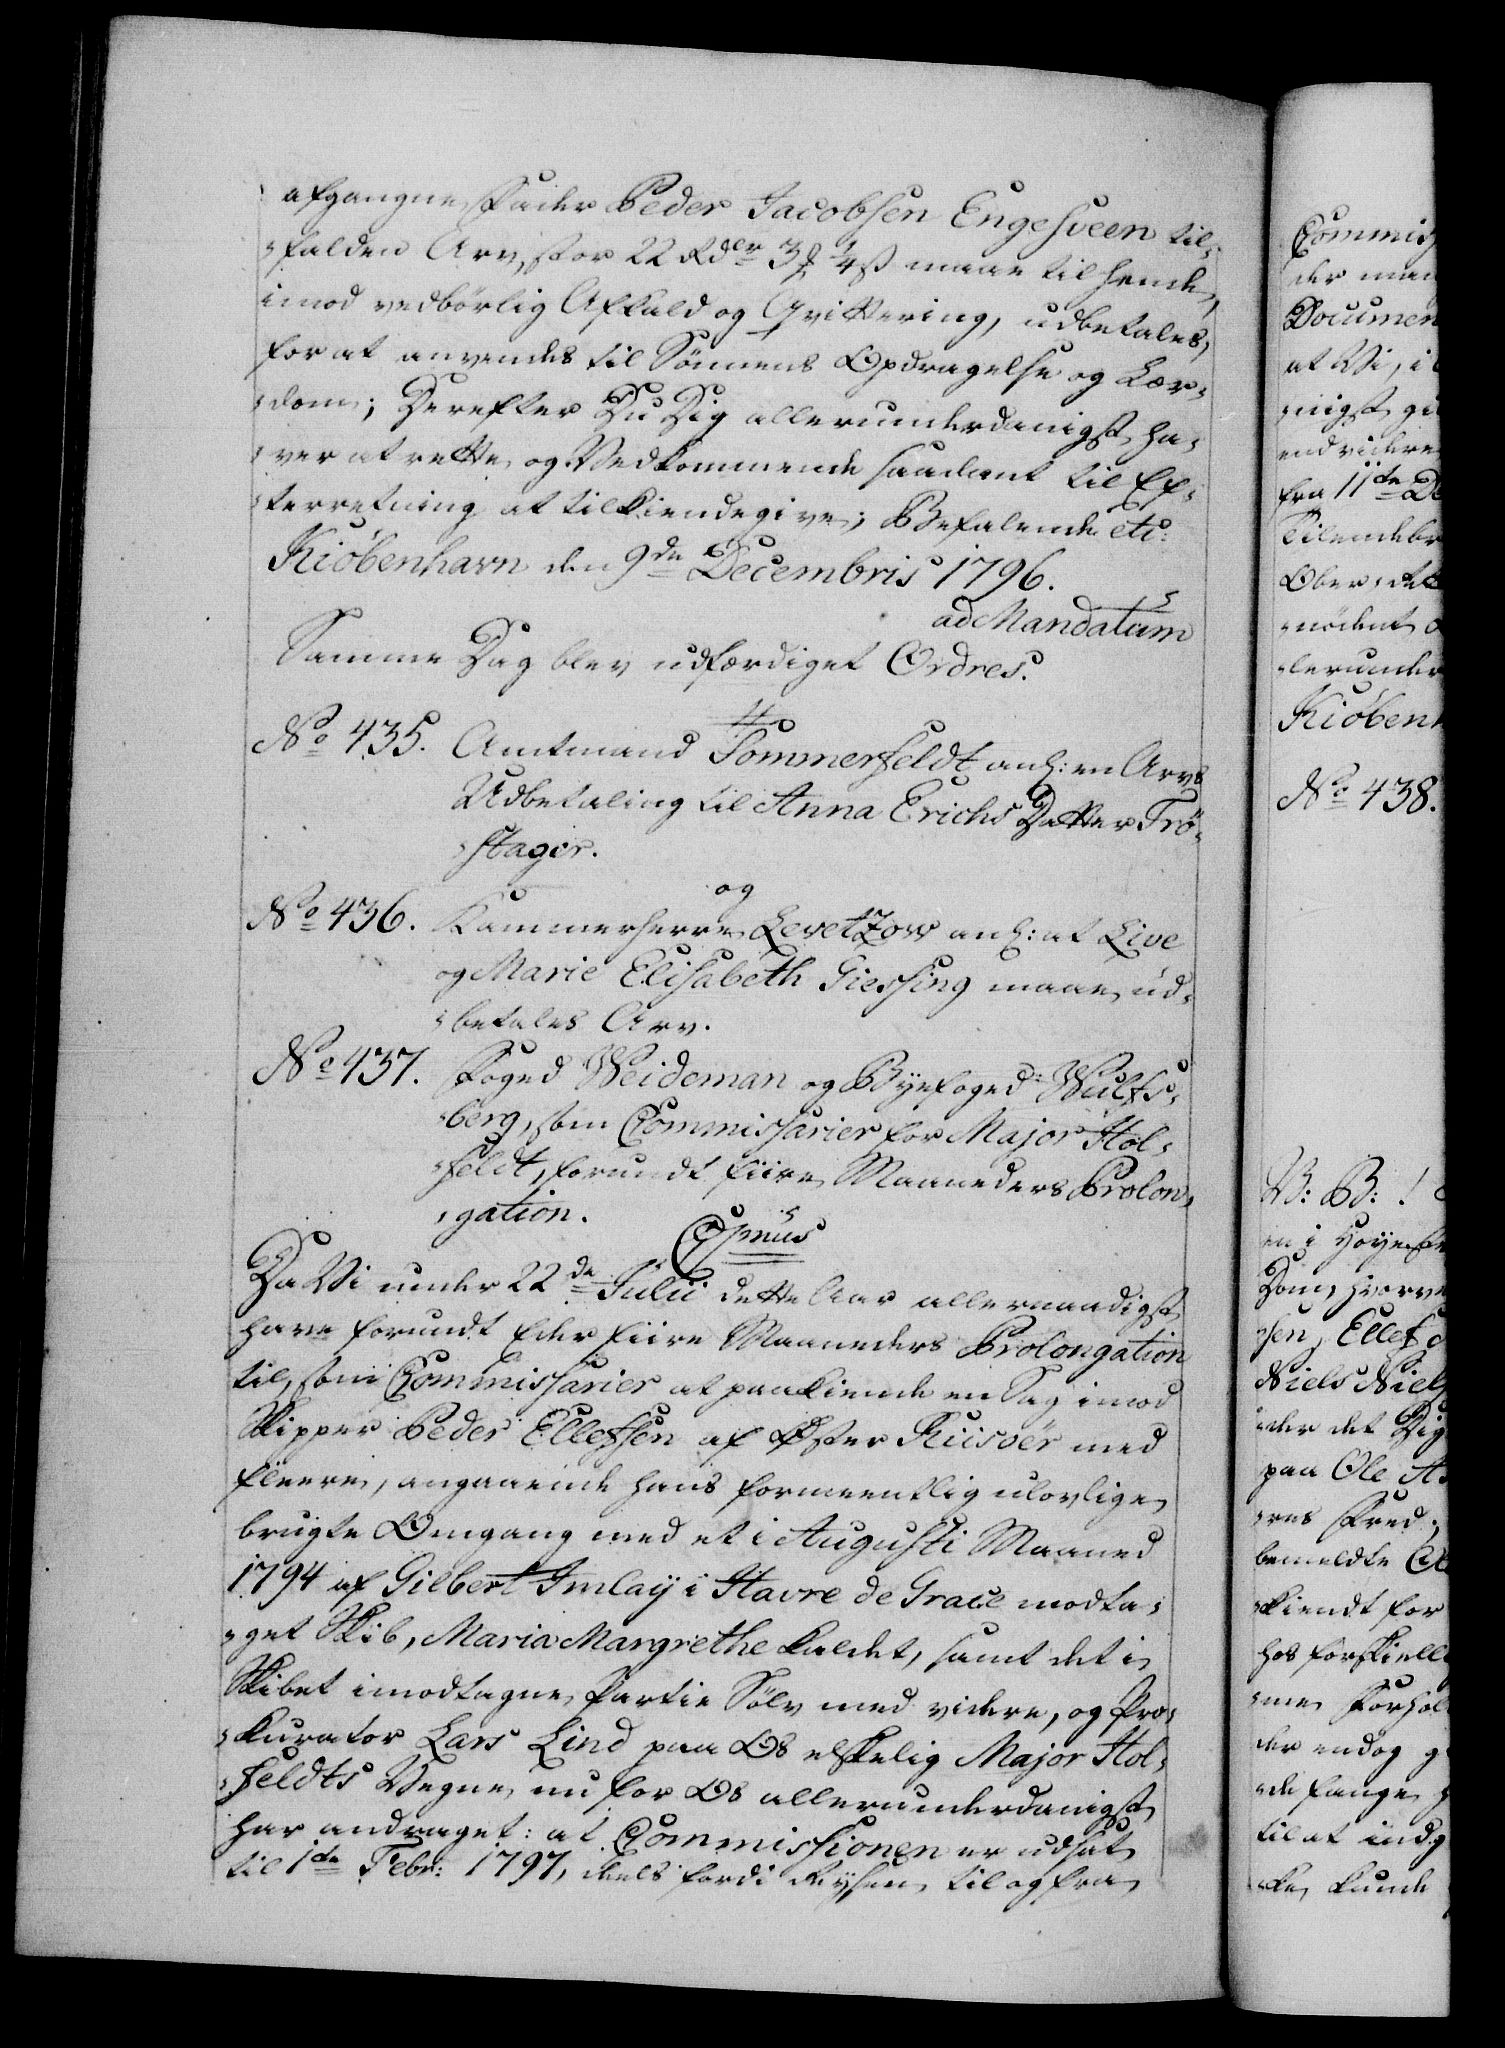 afgangne Fader Peder Jacobsen Engesveen til-
-falden Arv, stor 22 Rdlr 3 # 4 ß maae til hende,
imod vedbörlig Affald og Qvittering, udbetales,
for at anvendes til Sönnens Opdragelse og Lær-
-dom; Derefter Du Dig allerunderdanigst ha-
-ver at rette, og Vedkommende saadant til Ef-
-terretning at tilkiendegive; Befalende etc:
Kiöbenhavn den 9de Decembris 1796.
ad Mandatum
Samme Dag blev udfærdiget Ordres.
No 435. Amtmand Sommerfeldt anl: en Arvs
Udbetaling til Anna Erichs Datter Trö-
-stager.
og
No 436. Kammerherre Levetzow anl: at Live
og Marie Elisabeth Giessing maae ud-
-betales Arv.
No 437. Foged Weideman og Byefoged Wulfs-
-berg, som Commissarier for Major Hol-
-feldt, forundt fiire Maaneders Prolon-
-gation.
Da Vi under 22de Julii dette Aar allernaadigst
have forundt Eder fiire Maaneders Prolongation
til, som Commissarier at paakiende en Sag imod
Skipper Peder Ellefsen af Öster Riisöer med
fleere, angaaende hans formeentlig ulovlige
brugte Omgang med et i Augusti Maaned
1794 af Gilbert Imlay i Havre de Grace modta-
-get Skib, Maria Margrethe kaldet, samt det i
Skibet imodtagne Partie Sölv med videre, og Pro-
-kurator Lars Lind paa Os elskelig Major Hol-
-feldts Vegne nu for Os allerunderdanigst
har andraget: at Commissionen er udsat
til 1te Febr: 1797, deels fordi Reysen til og fra
der man
Documen
at Vi, i
-nigst gi
end videre
fra 11te De
-lerunder
Kiöbenh
No 438.
V: B:
Dom, hvorve
-sen, Ellef
Niels Niels
-der det Dig
paa Ole
bemeldte
-kiendt for
hos forskiell
-me Forhol
der endog g
-de fange
til at indg
-ke kunde